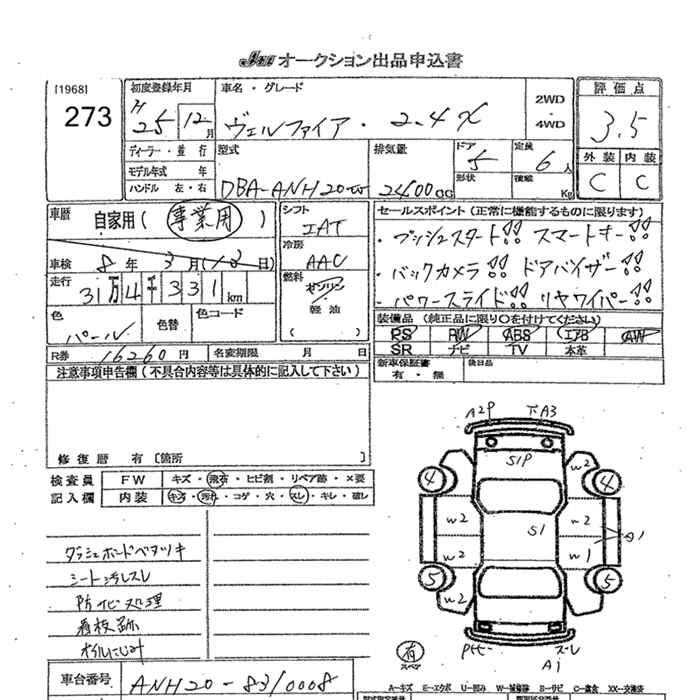 JAA オークション出品申込書
[1968]
273
初度登録年月
H 25 12月
車名・グレード
ヴェルファイア・2.4X
2WD
・
4WD
評価点
3.5
外装 内装
C C
ディーラー・並行
モデル年式 年
ハンドル 左・右
型式
DBA-ANH20W
排気量
2400cc
ドア
5
形状
定員
6人
積載
Kg
車歴
自家用(事業用)
車検 8年3月(13日)
走行 31万4千331km
色
パール
色替
色コード
シフト
IAT
冷房
AAC
燃料
ガソリン
軽油
( )
セールスポイント(正常に機能するものに限ります)
・プッシュスタート!! スマートキー!!
・バックカメラ!! ドアバイザー!!
・パワースライド!! リヤワイパー!!
装備品(純正品に限り○を付けてください)
PS PW ABS エアB AW
SR ナビ TV 本革
新車保証書
有・無
後日品
R券 16260円
名変期限 月 日
注意事項申告欄(不具合内容等は具体的に記入して下さい)
修復歴 有〔箇所 〕
検査員
記入欄
FW キズ・飛石・ヒビ割・リペア跡・×要
内装 キズ・汚れ・コゲ・穴・スレ・キレ・破レ
ダッシュボードベタツキ
シート汚レスレ
防サビ処理
看板跡
オイルにじみ
車台番号 ANH20-8310008
A2P 下A3
S1P
W2
4 4
W2 S1 W2
A1
W2 W1
5 5
W2
有
スペア
スレ
A1
A…キズ E…エクボ U…凹み W…補修跡 S…サビ C…腐食 XX…交換済